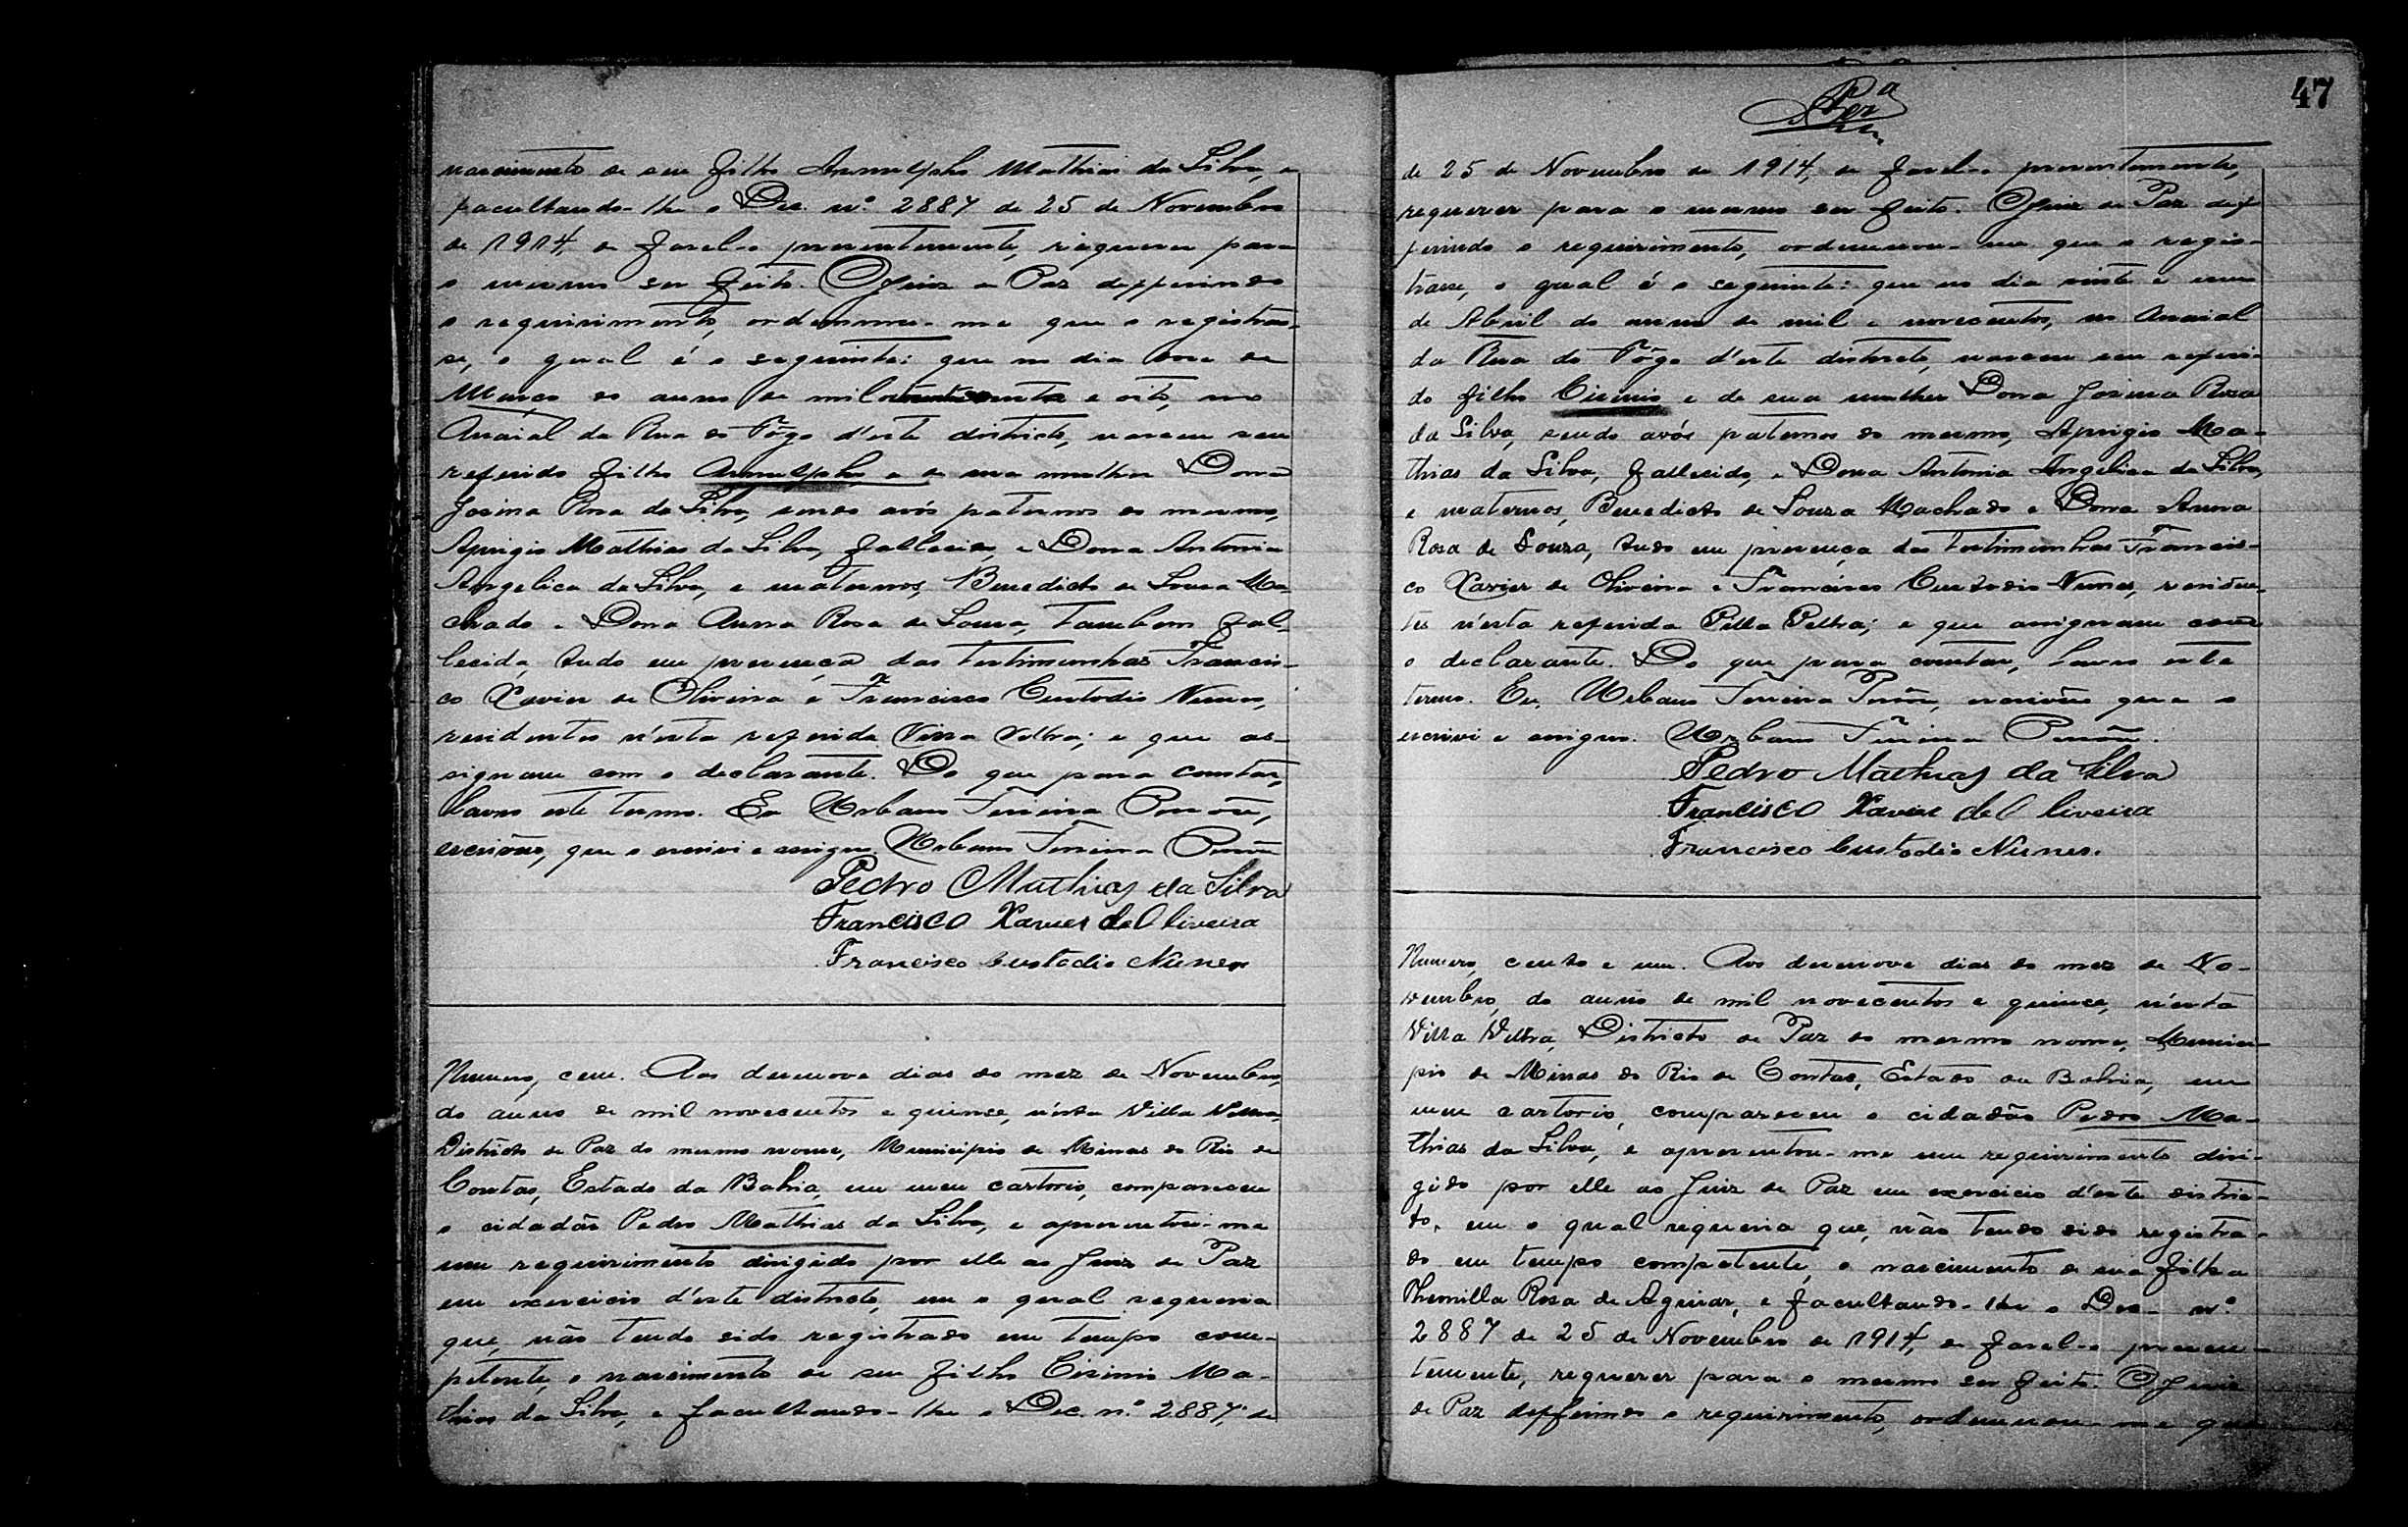 nascimento de seu filho Arnulpho Mathias da Silva, e
facultando-lhe o Dec. nº 2887 de 25 de Novembro
de 1914, de fasel-o presentemente, requerer para
o mesmo ser feito. O Juiz de Paz defferindo
o requirimento, ordennou-me que o registras-
se, o qual é o seguinte: que no dia de
Março do anno de mil e oito, no
Arraial da Rua do Fôgo d'este districto, nasceu seu
referido filho Arnulpho, e de sua mulher Dona
Josina Rosa da Silva, sendo avós paternos do mesmo,
Aprigio Mathias da Silva, fallecido, e Dona Antonia
Angelica da Silva, e maternos, Benedicto de Souza Ma-
chado e Dona Anna Rosa de Souza, tambem fal-
lecida, tudo em presença das testimunhas Francis-
co Xavier de Oliveira e Francisco Custodio Nunes,
residentes n'esta referida Villa Velha; e que as-
signam com o declarante. Do que para constar,
lavro este termo. Eu Urbano Ferreira
escrivão, que o escrivi e assigno. Urbano Ferreira
Pedro Mathias da Silva
Francisco Xavier de Oliveira
Francisco Custodio Nunes
Numero, cem. Aos desenove dias do mez de Novembro,
do anno de mil novecentos e quinse, n'esta Villa Velha,
Districto de Paz do mesmo nome, Municipio de Minas do Rio de
Contas, Estado da Bahia, em meu cartorio, compareceu
o cidadão Pedro Mathias da Silva, e apresentou-me
um requirimento dirigido por elle ao Juiz de Paz
em exercicio d'este districto, em o qual requeria
que, não tendo sido registrado em tempo com-
petente, o nascimento de seu filho Cirinio Ma-
thias da Silva, e facultando-lhe o Dec. nº 2887, de
47
de 25 de Novembro de 1914, de fasel-o presentemente,
requerer para o mesmo ser feito. O Juiz de Paz def-
ferindo o requirimento, ordennou-me que o regis-
trasse, o qual é o seguinte: que no dia vinte e um
de Abril do anno de mil e novecentos, no Arraial
da Rua do Fôgo d'este districto, nasceu seu referi-
do filho Cirinio e de sua mulher Dona Josina Rosa
da Silva, sendo avós paternos do mesmo, Aprigio Ma-
thias da Silva, fallecido, e Dona Antonia Angelica da Silva,
e maternos, Benedicto de Souza Machado e Dona Anna
Rosa de Souza, tudo em presença das testimunhas Francis-
co Xavier de Oliveira e Francisco Custodio Nunes, residen-
tes n'esta referida Villa Velha; e que assignam com
o declarante. Do que para constar, lavro este
termo. Eu, Urbano Ferreira escrivão que o
escrivi e assigno. Urbano Ferreira
Pedro Mathias da Silva
Francisco Xavier de Oliveira
Francisco Custodio Nunes.
Numero, cento e um. Aos desenove dias do mez de No-
vembro, do anno de mil novecentos e quinse, n'esta
Villa Velha, Districto de Paz do mesmo nome, Munici-
pio de Minas do Rio de Contas, Estado da Bahia, em
meu cartorio, compareceu o cidadão Pedro Ma-
thias da Silva, e apresentou-me um requirimento diri-
gido por elle ao Juiz de Paz em exercicio d'este distric-
to, em o qual requeria que, não tendo sido registra-
do em tempo competente, o nascimento de sua filha
Rosa de Aguiar, e facultando-lhe o Dec. nº
2887 de 25 de Novembro de 1914, de fasel-o presen-
temente, requerer para o mesmo ser feito. O Juiz
de Paz defferindo o requirimento, ordennou-me que